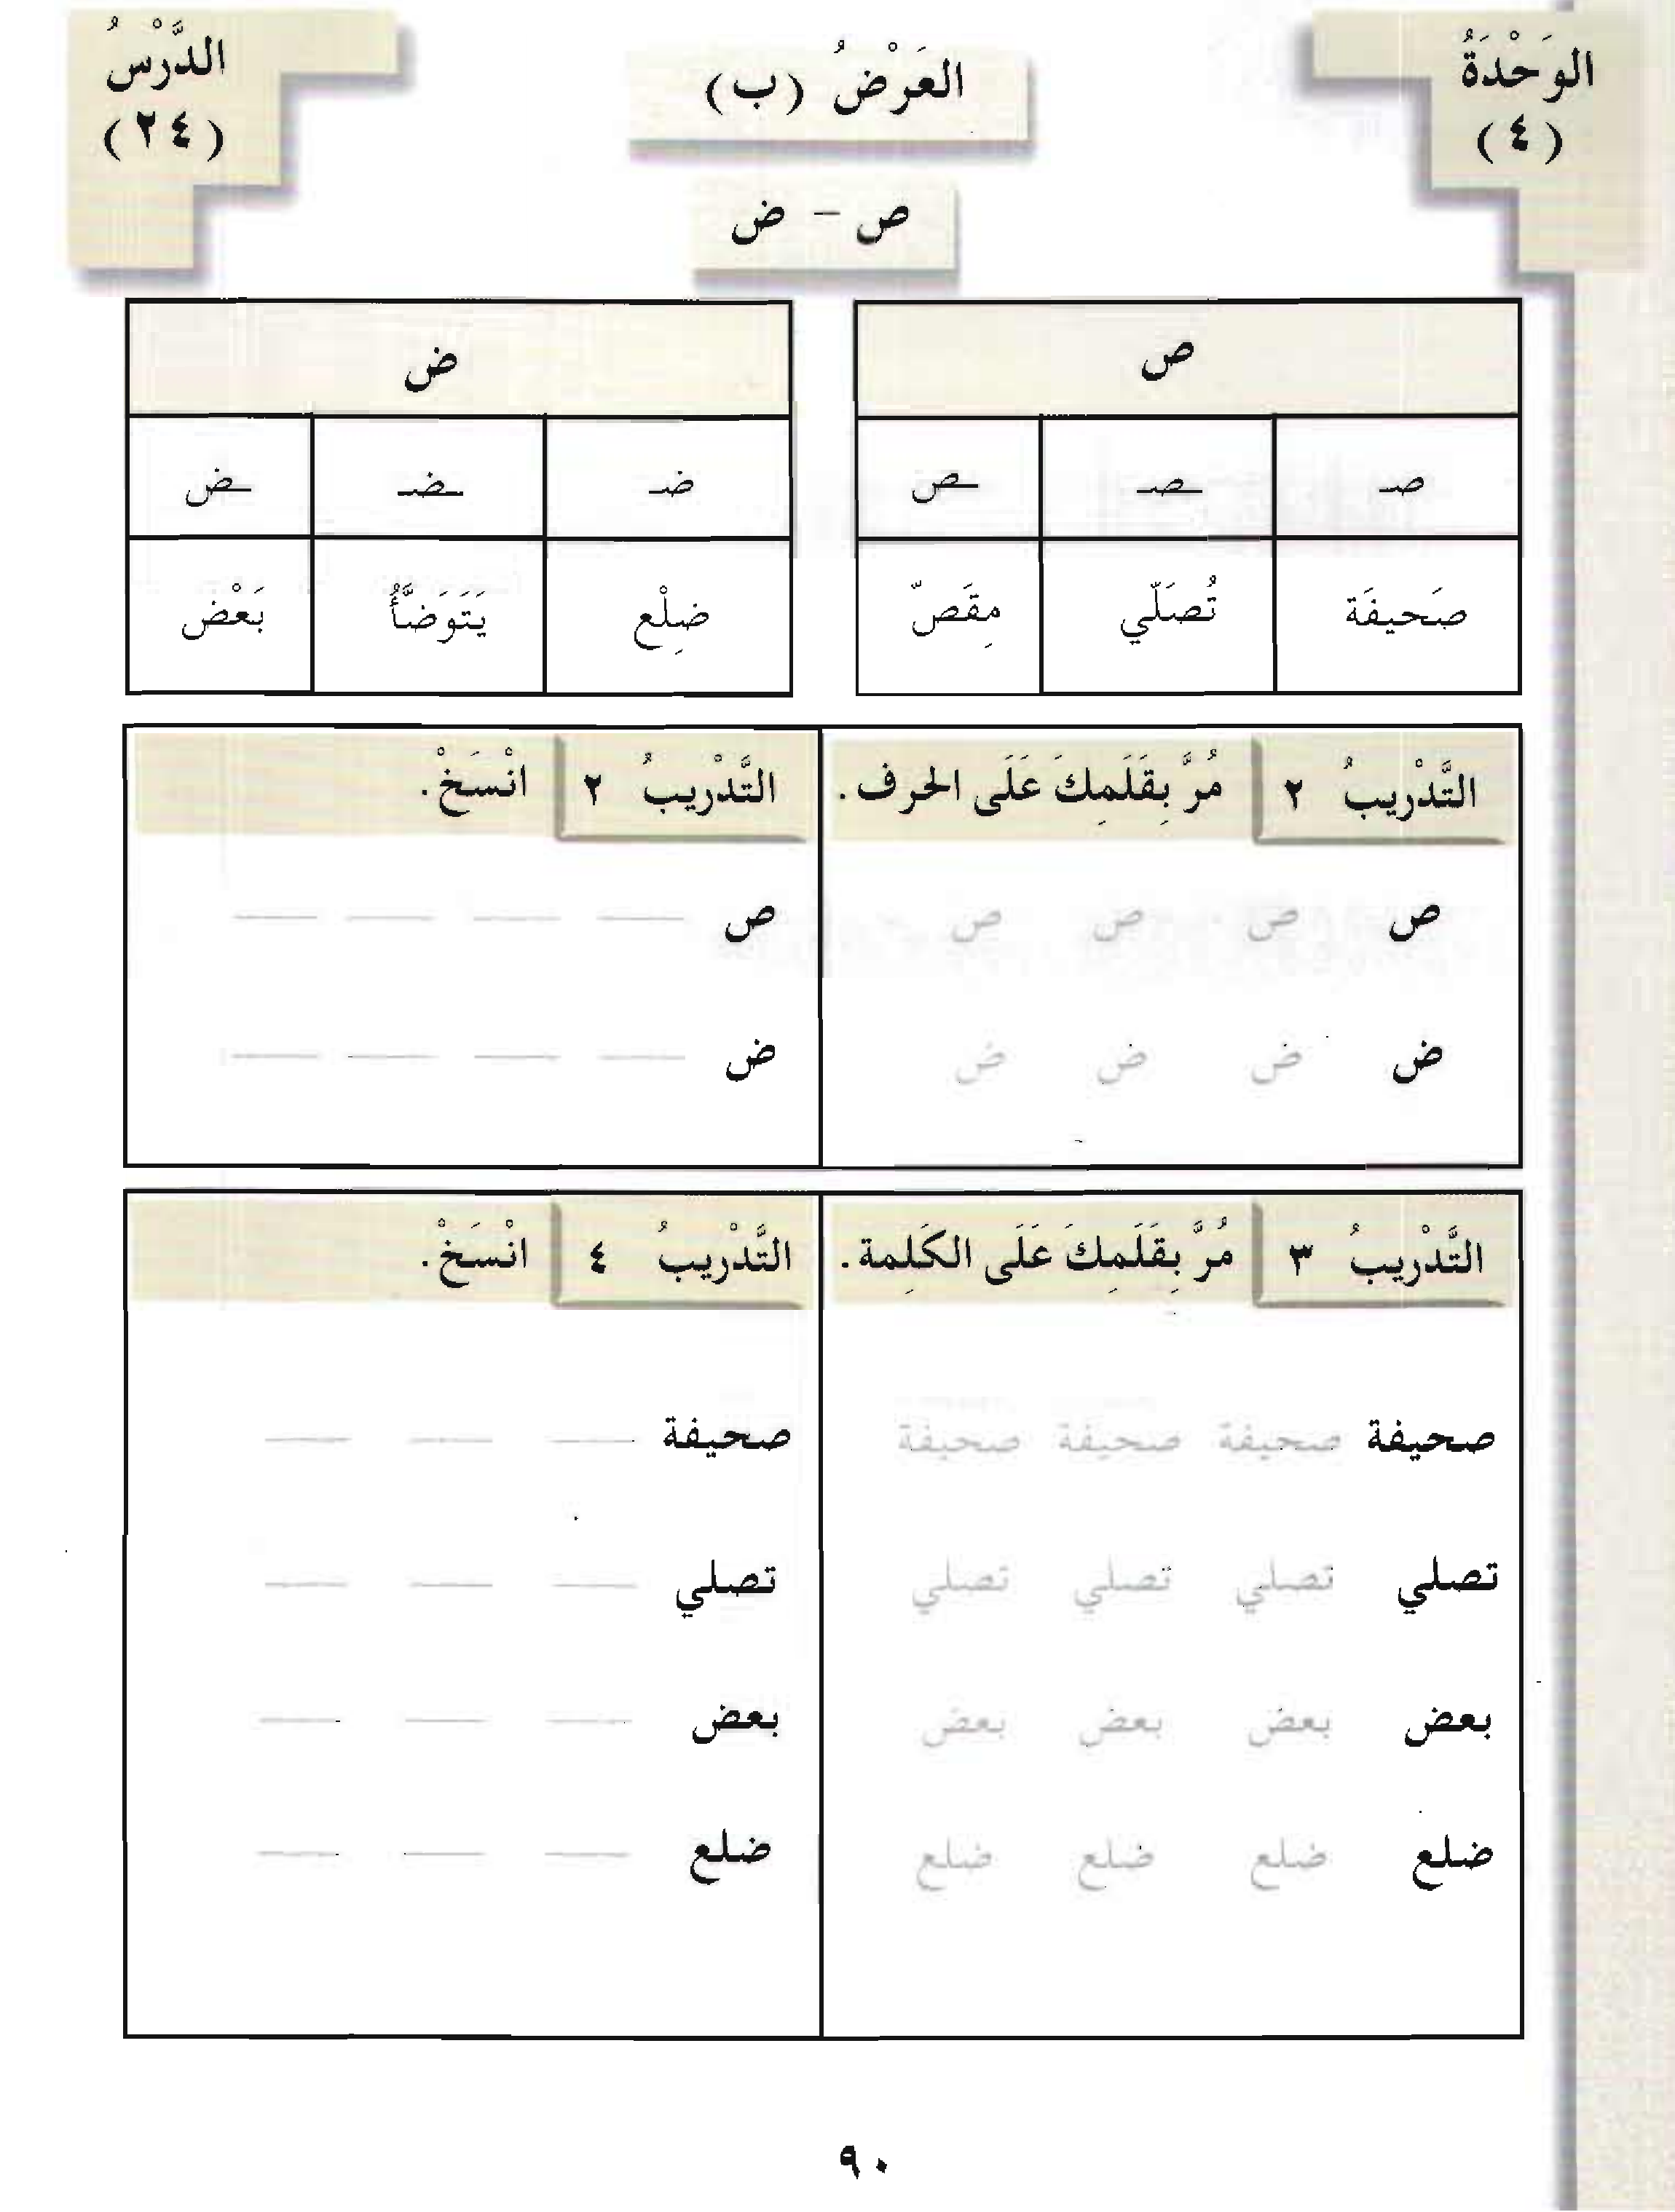 الوَحْدَةُ
(٤)
العَرْضُ (ب)
الدَّرْسُ
(٢٤)
ص - ض
ص
صـ ـصـ ـص
صَحيفَة تُصَلّي مِقَصّ
ض
ضـ ـضـ ـض
ضِلْع يَتَوَضَّأُ بَعْض
التَّدْرِيبُ ٢ مُرَّ بِقَلَمِكَ عَلَى الحرف.
ص ص ص ص
ض ض ض ض
التَّدْرِيبُ ٢ انْسَخْ.
ص
ض
التَّدْرِيبُ ٣ مُرَّ بِقَلَمِكَ عَلَى الكَلِمة.
صحيفة صحيفة صحيفة صحيفة
تصلي تصلي تصلي تصلي
بعض بعض بعض بعض
ضلع ضلع ضلع ضلع
التَّدْرِيبُ ٤ انْسَخْ.
صحيفة
تصلي
بعض
ضلع
٩٠